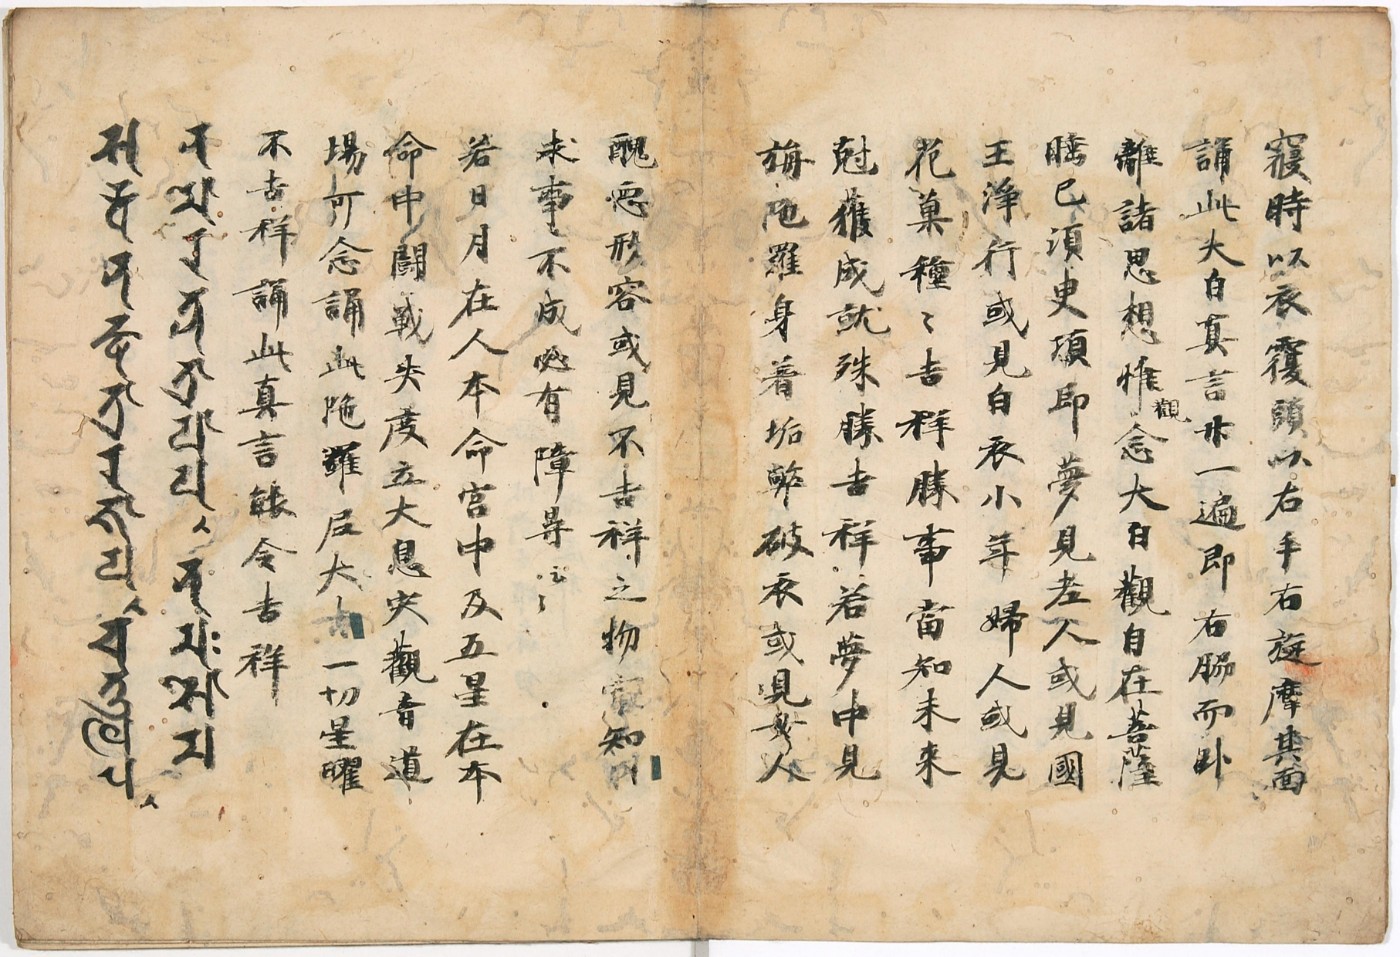 寢時以衣覆頭以右手右旋摩其面
誦此大白真言卅一遍即右脇而卧
離諸思想惟觀念大白觀自在菩薩
睡已須臾頃即夢見老人或見國
王淨行或見白衣小年婦人或見
花菓種〻吉祥勝事當知未來
尅獲成就殊勝吉祥若夢中見
旃陁羅身着垢弊破衣或見女人
醜惡形容或見不吉祥之物當知
求事不成必有障㝵云〻
若日月在人本命宮中及五星在本
命中鬪戰失度立大息灾觀音道
場可念誦此陁羅尼大吉一切星曜
不吉祥誦此真言能令吉祥